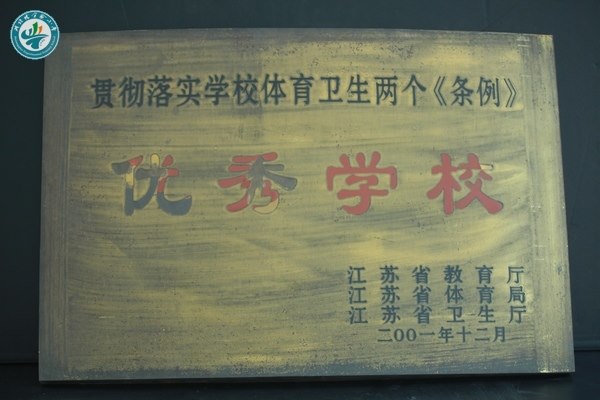 贯彻落实学校体育卫生两个《条例》
优秀学校
江苏省教育厅
江苏省体育局
江苏省卫生厅
二〇〇一年十二月